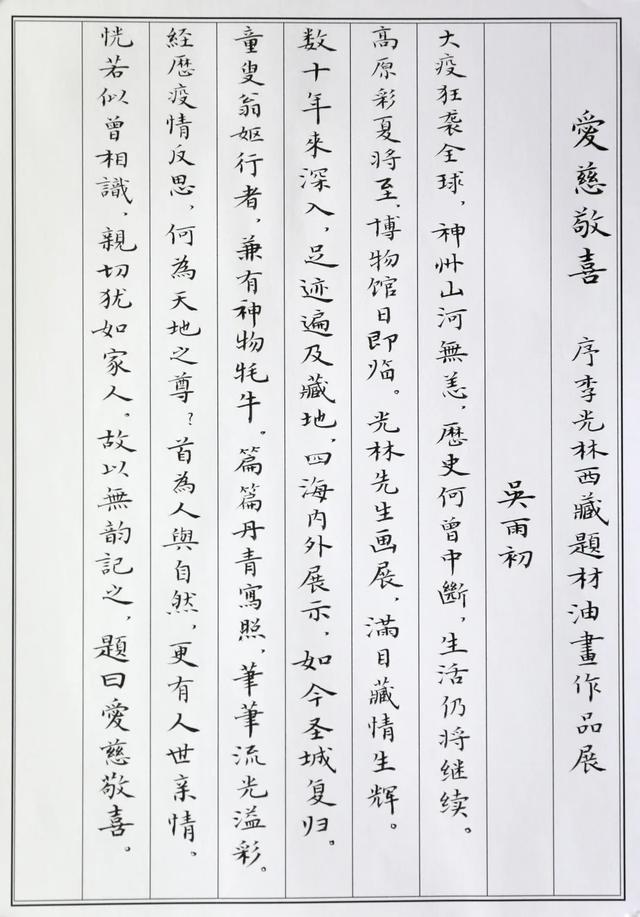 愛慈敬喜 序李光林西藏題材油畫作品展
吳雨初
大疫狂袭全球，神州山河無恙，歷史何曾中斷，生活仍将继续。
高原彩夏将至，博物馆日即临。光林先生画展，滿目藏情生辉。
数十年來深入，足迹遍及藏地，四海内外展示，如今圣城复归。
童叟翁妪行者，兼有神物牦牛。篇篇丹青寫照，筆筆流光溢彩。
経歷疫情反思，何為天地之尊？首為人與自然，更有人世亲情。
恍若似曾相識，親切犹如家人。故以無韵記之，題曰愛慈敬喜。